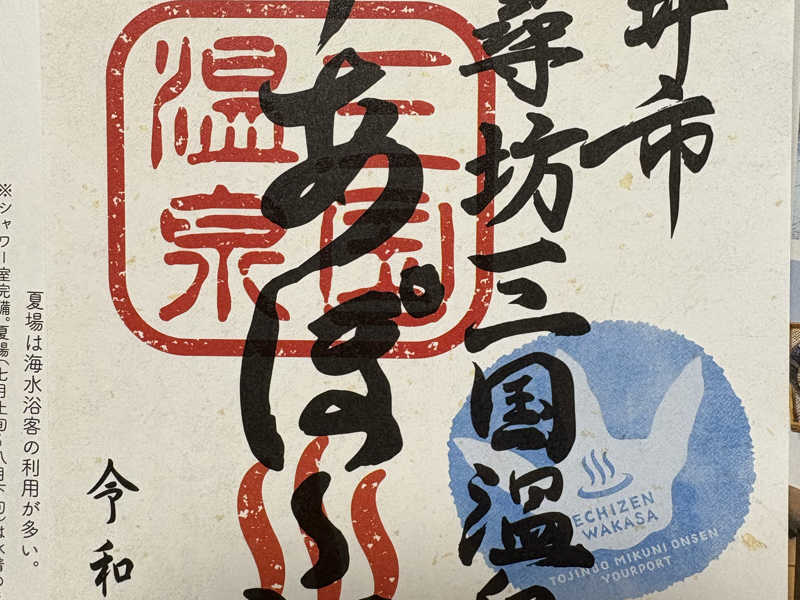 井市
尋坊三国温泉
ゆあぽ〜
三国
温泉
ECHIZEN
WAKASA
TOJINBO MIKUNI ONSEN
YOURPORT
令和
夏場は海水浴客の利用が多い。
※シャワー室完備。夏場(七月上旬〜八月下旬)は水着の